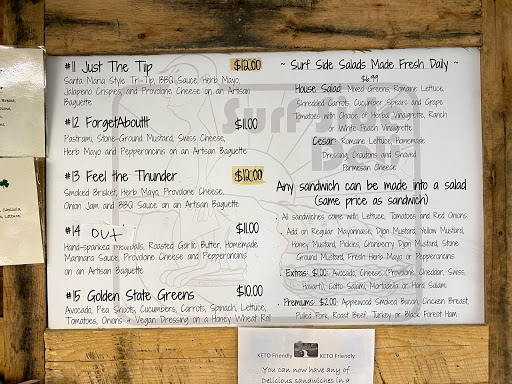 #11 Just The Tip $12.00
Santa Maria Style Tri-Tip, BBQ Sauce, Herb Mayo,
Jalapeno Crispies, and Provolone Cheese on an Artisan
Baguette
#12 ForgetAboutIt $11.00
Pastrami, Stone-Ground Mustard, Swiss Cheese,
Herb Mayo and Pepperoncini on an Artisan Baguette
#13 Feel the Thunder $12.00
Smoked Brisket, Herb Mayo, Provolone Cheese,
Onion Jam and BBQ Sauce on an Artisan Baguette
#14 OUT $11.00
Hand-spanked meatballs, Roasted Garlic Butter, Homemade
Marinara Sauce, Provolone Cheese and Pepperoncini
on an Artisan Baguette
#15 Golden State Greens $10.00
Avocado, Pea Shoots, Cucumbers, Carrots, Spinach, Lettuce,
Tomatoes, Onions & Vegan Dressing on a Honey Wheat Roll
~ Surf Side Salads Made Fresh Daily ~
$6.99
House Salad: Mixed Greens, Romaine Lettuce,
Shredded Carrots, Cucumber Spears and Grape
Tomatoes with Choice of Herbal Vinaigrette, Ranch
or White Peach Vinaigrette
Cesar: Romaine Lettuce, Homemade
Dressing, Croutons and Shaved
Parmesan Cheese
Any sandwich can be made into a salad
(same price as sandwich)
All sandwiches come with Lettuce, Tomatoes and Red Onions.
Add on Regular Mayonnaise, Dijon Mustard, Yellow Mustard,
Honey Mustard, Pickles, Cranberry Dijon Mustard, Stone
Ground Mustard, Fresh Herb Mayo or Pepperoncini
Extras: $1.00: Avocado, Cheese (Provolone, Cheddar, Swiss,
Havarti), Cotto Salami, Mortadella or Hard Salami
Premiums: $2.00: Applewood Smoked Bacon, Chicken Breast,
Pulled Pork, Roast Beef, Turkey or Black Forest Ham
Surf Side
KETO Friendly KETO Friendly
You can now have any of
Delicious sandwiches in a